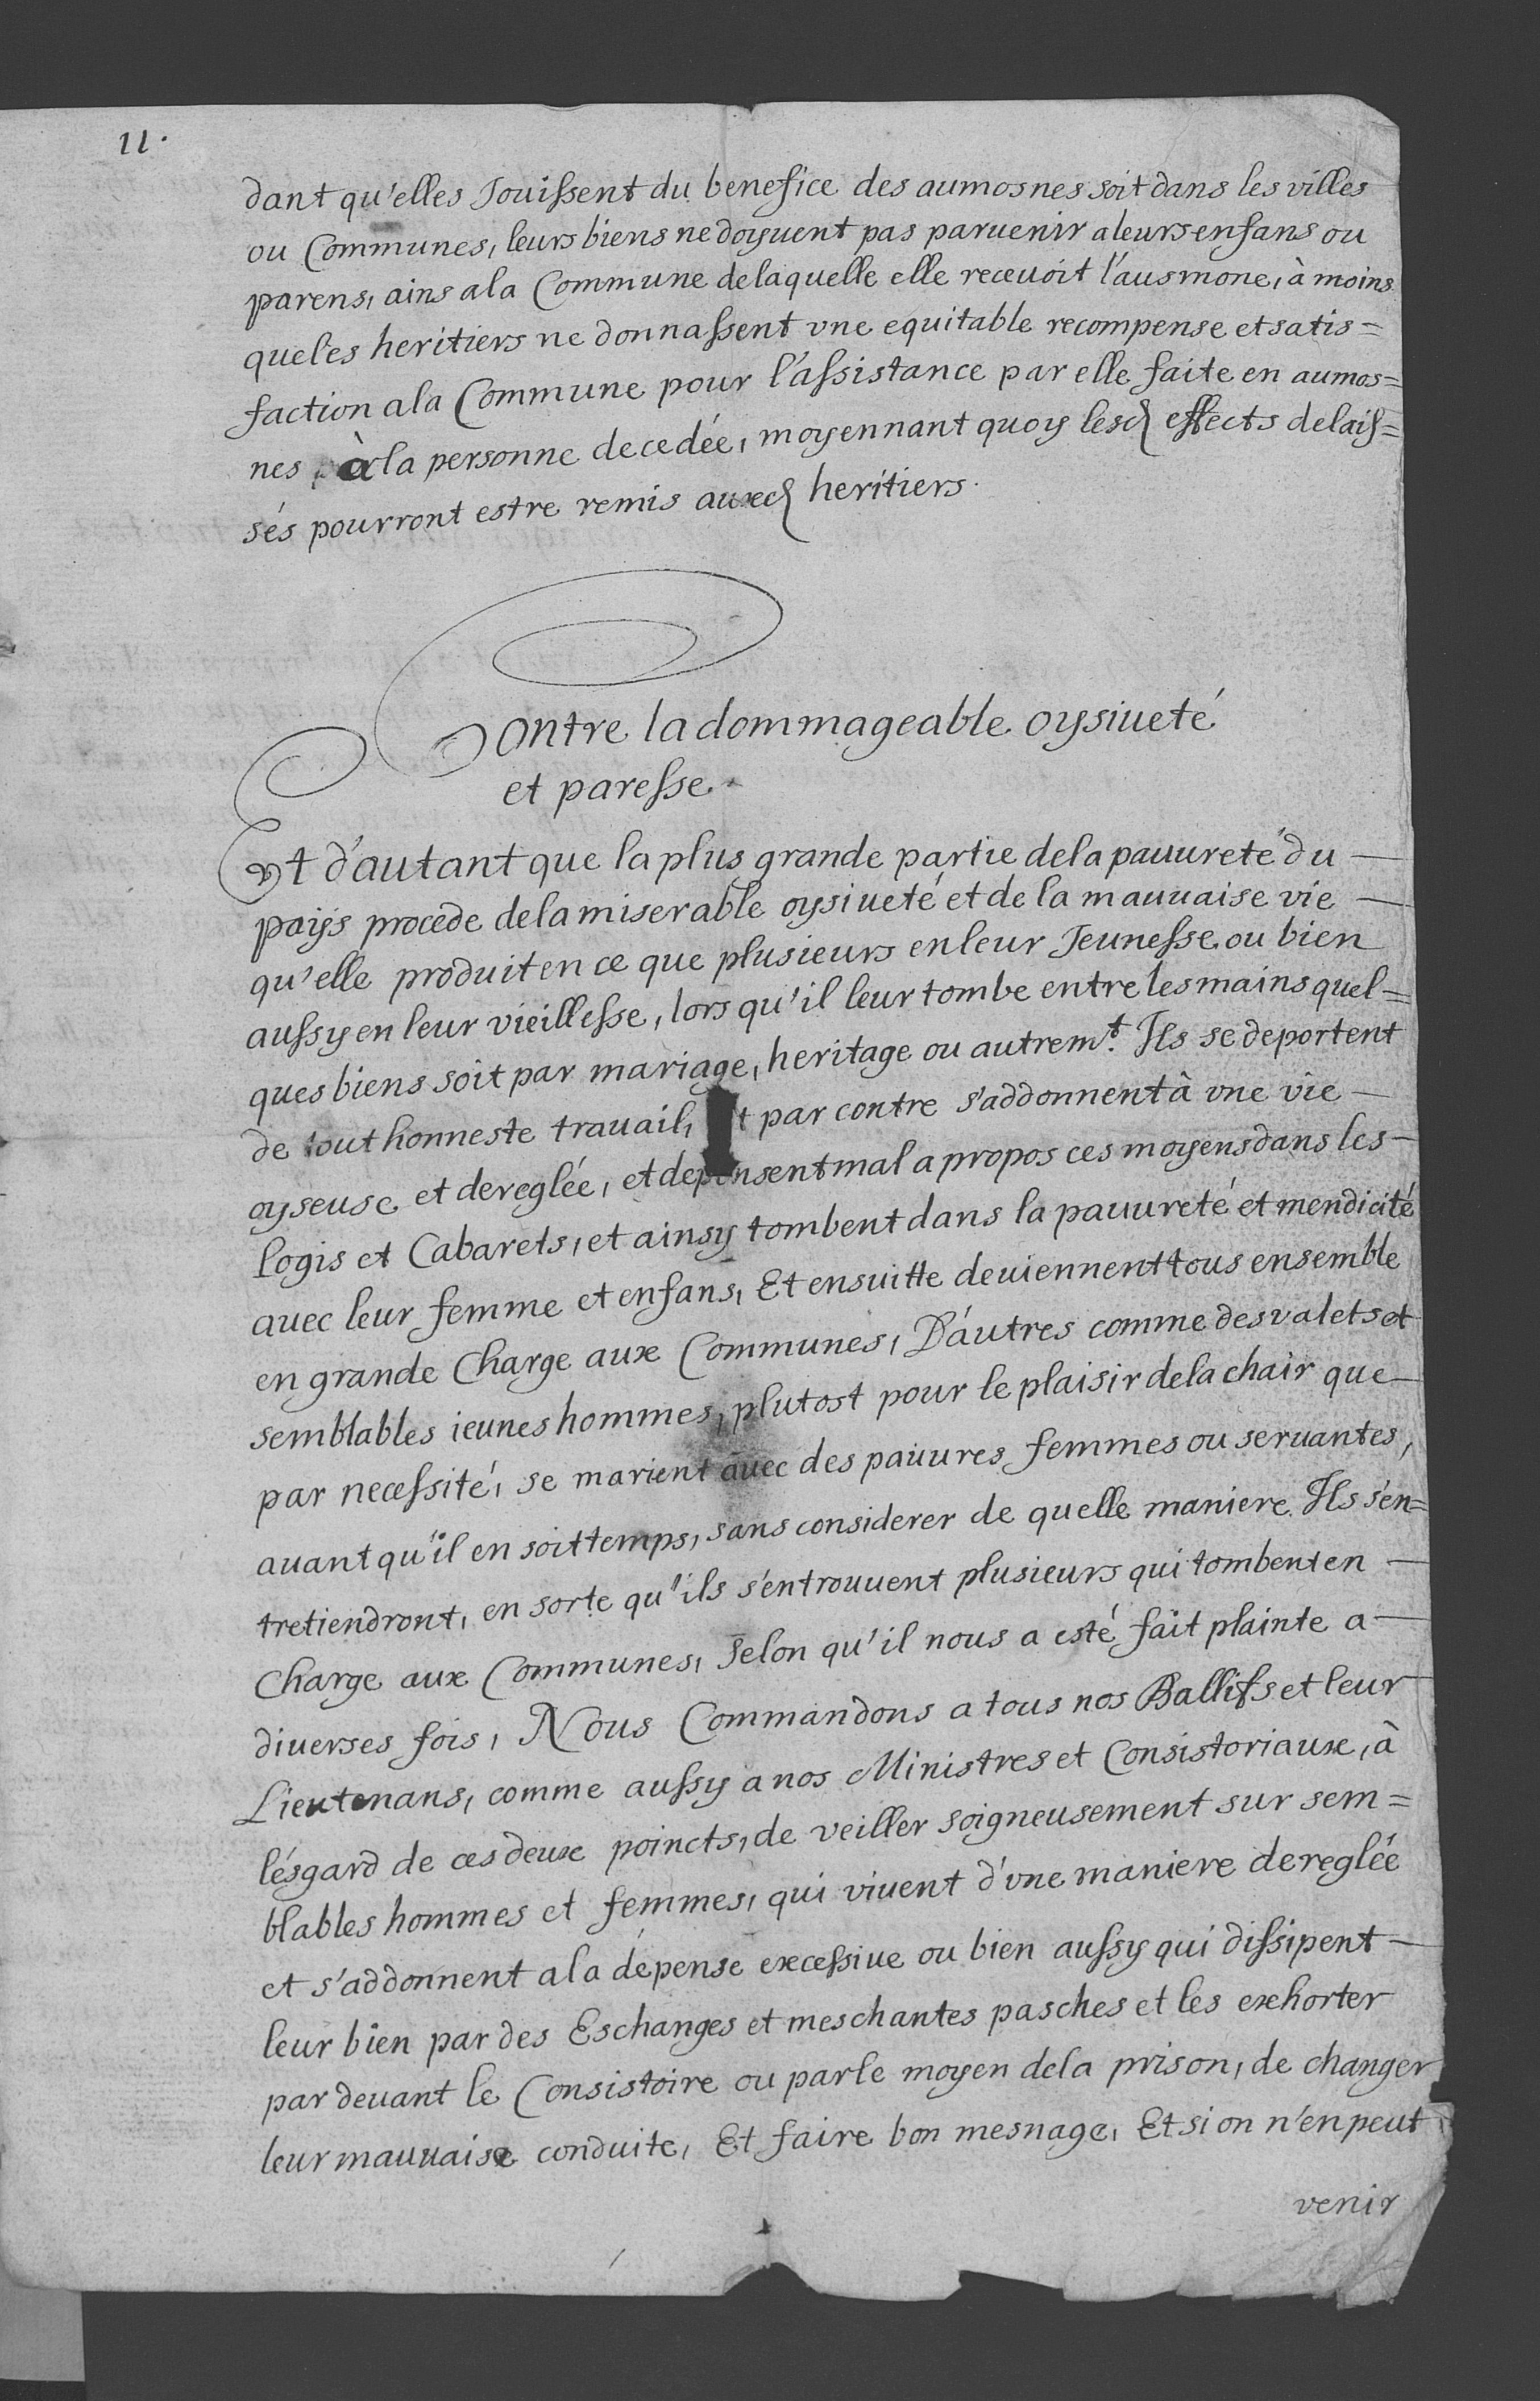 11.
dant qu'elles Jouissent du benefice des aumosnes soit dans les villes
ou Communes, leurs biens ne doyuent pas paruenir a leurs enfans ou
parens, ains a la Commune de laquelle elle receuoit l'ausmone, à moins
que les heritiers ne donnassent vne equitable recompense et satis=
faction a la Commune pour l'assistance par elle faite en aumos=
nes, à la personne decedée, moyennant quoy lesd effects delais=
sés pourront estre remis auxd heritiers.
Contre la dommageable oysiueté
et paresse.
Et d'autant que la plus grande partie de la pauureté du —
pays procede de la miserable oysiueté et de la mauuaise vie —
qu'elle produit en ce que plusieurs en leur Jeunesse ou bien
aussy en leur vieillesse, lors qu'il leur tombe entre les mains quel=
ques biens soit par mariage, heritage ou autremt. Ils se deportent
de tout honneste trauail, et par contre s'addonnent à vne vie —
oyseuse et dereglée, et depensent mal a propos ces moyens dans les —
logis et Cabarets, et ainsy tombent dans la pauureté et mendicité
auec leur femme et enfans, Et ensuitte deuiennent tous ensemble
en grande Charge aux Communes, D'autres comme des valets et
semblables ieunes hommes, plutost pour le plaisir de la chair que —
par necessité, se marient auec des pauures femmes ou seruantes,
auant qu'il en soit temps, sans considerer de quelle maniere Ils s'en=
tretiendront, en sorte qu'ils s'entrouuent plusieurs qui tombent en —
Charge aux Communes, Selon qu'il nous a esté fait plainte a —
diuerses fois, Nous Commandons a tous nos Ballifs et leur
Lieutenans, comme aussy a nos Ministres et Consistoriaux, à
lésgard de ces deux poincts, de veiller soigneusement sur sem=
blables hommes et femmes, qui viuent d'vne maniere dereglée
et s'addonnent a la dépense excessiue ou bien aussy qui dissipent —
leur bien par des Eschanges et meschantes pasches et les exhorter
par deuant le Consistoire ou par le moyen de la prison, de changer
leur mauuaise conduite, Et faire bon mesnage, Et si on n'en peut
venir